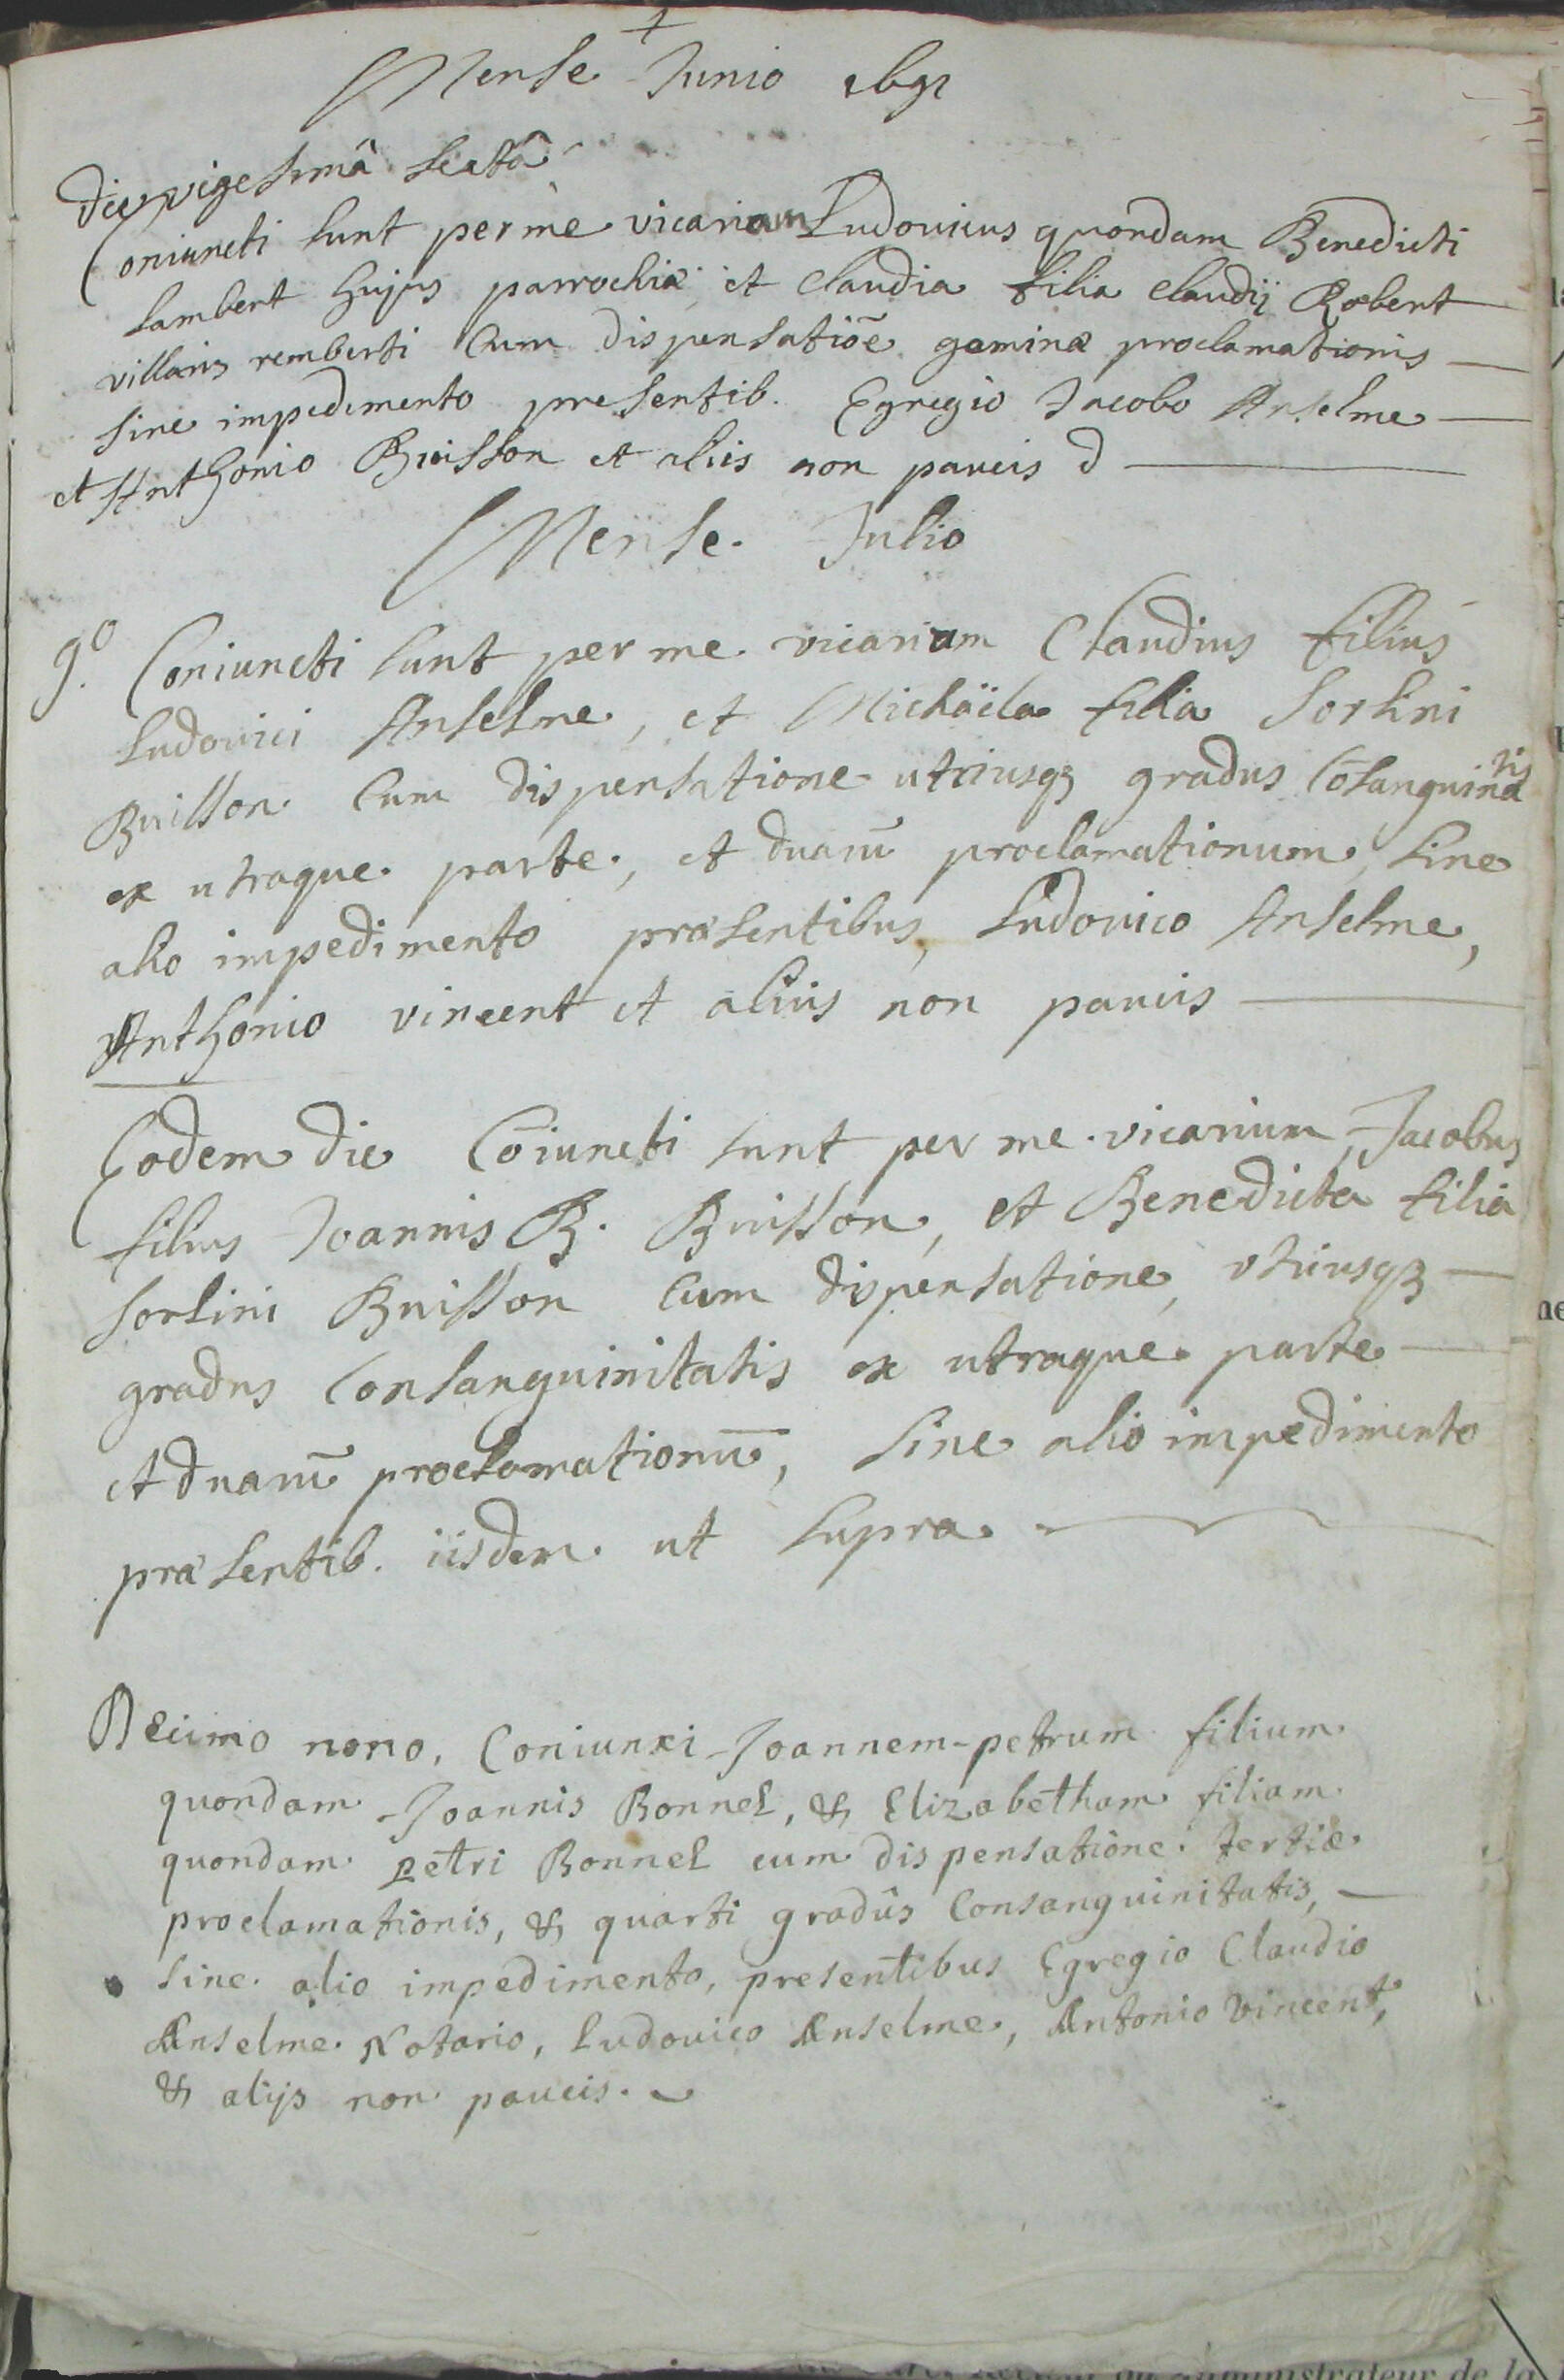 Mense Junio
die vigesimâ sextâ
Coniuncti sunt per me vicarium Ludovicus quondam Benedicti
Lambert hujus parrochiæ et Claudia filia Claudij Robert
villaris remberti Cum dispensatiōe geminæ proclamationis
sine impedimento presentib. Egregio Jacobo Anselme
et Anthonio Buisson et aliis non paucis
Mense Julio
9º. Coniuncti sunt per me vicarium Claudius filius
Ludovici Anselme, et Michaëla filia Sorlini
Buisson Cum dispensatione utriusqꝫ gradus Cōsanguinitis
ex utraque parte, et duarū proclamationum, sine
alio impedimento præsentibus, Ludovico Anselme,
Anthonio vincent et aliis non paucis
Eodem die Cōiuncti sunt per me vicarium, Jacobus
filius Joannis B. Buisson, et Benedicta filia
Sorlini Buisson Cum dispensatione, vtriusqꝫ
gradus Consanguinitatis ex utraque parte
et duarū proclamationū, sine alio impedimento
præsentib. iisdem ut supra
Decimo nono, Coniunxi Joannem-petrum filium
quondam Joannis Bonnel, & Elizabetham filiam
quondam petri Bonnel cum dispensatione tertiæ
proclamationis, & quarti gradûs Consanguinitatis,
sine alio impedimento, presentibus Egregio Claudio
Anselme Notario, Ludovico Anselme, Antonio vincent,
& alijs non paucis.
administrateur de la